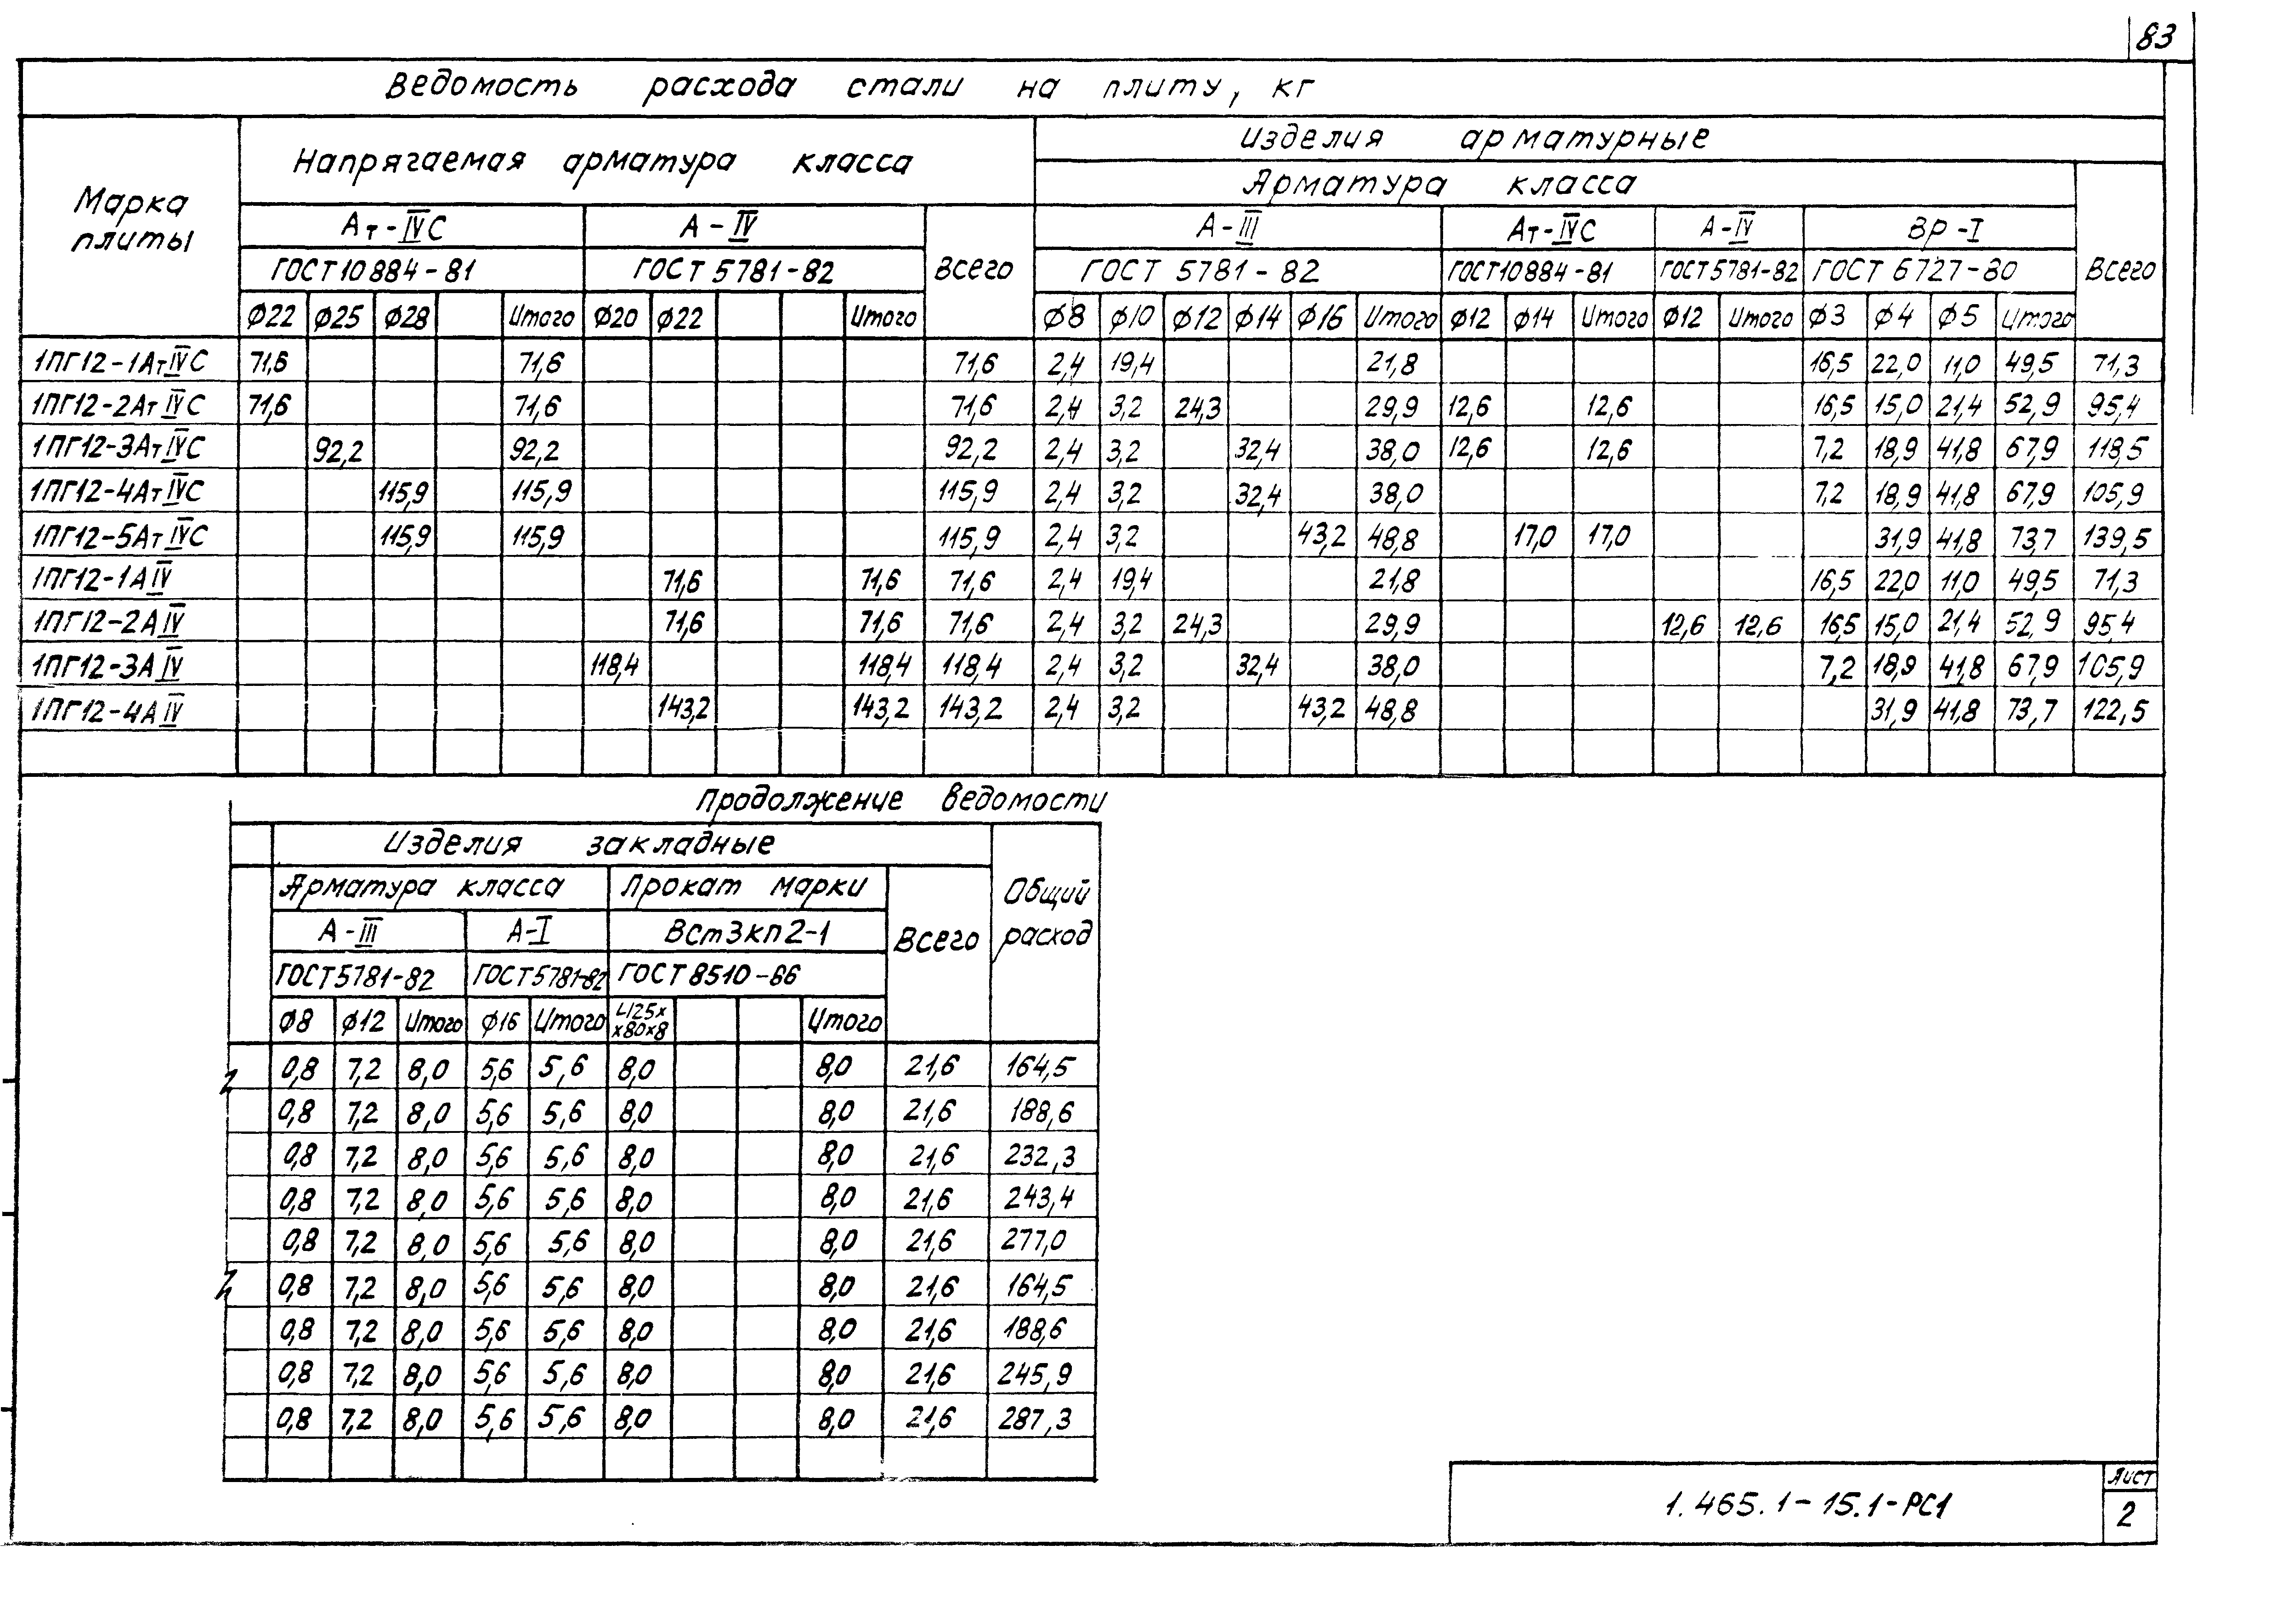 83
Ведомость расхода стали на плиту, кг
Марка плиты
Напрягаемая арматура класса
Изделия арматурные
Арматура класса
Ат-IVС А-IV Всего А-III Ат-IVС А-IV ВР-I Всего
ГОСТ 10884-81 ГОСТ 5781-82 ГОСТ 5781-82 ГОСТ 10884-81 ГОСТ 5781-82 ГОСТ 6727-80
Ф22 Ф25 Ф28 Итого Ф20 Ф22 Итого Ф8 Ф10 Ф12 Ф14 Ф16 Итого Ф12 Ф14 Итого Ф12 Итого Ф3 Ф4 Ф5 Итого
1ПГ12-1АтIVС 71,6 71,6 71,6 2,4 19,4 21,8 16,5 22,0 11,0 49,5 71,3
1ПГ12-2АтIVС 71,6 71,6 71,6 2,4 3,2 24,3 29,9 12,6 12,6 16,5 15,0 21,4 52,9 95,4
1ПГ12-3АтIVС 92,2 92,2 92,2 2,4 3,2 32,4 38,0 12,6 12,6 7,2 18,9 41,8 67,9 118,5
1ПГ12-4АтIVС 115,9 115,9 115,9 2,4 3,2 32,4 38,0 7,2 18,9 41,8 67,9 105,9
1ПГ12-5АтIVС 115,9 115,9 115,9 2,4 3,2 43,2 48,8 17,0 17,0 31,9 41,8 73,7 139,5
1ПГ12-1АIV 71,6 71,6 71,6 2,4 19,4 21,8 16,5 22,0 11,0 49,5 71,3
1ПГ12-2АIV 71,6 71,6 71,6 2,4 3,2 24,3 29,9 12,6 12,6 16,5 15,0 21,4 52,9 95,4
1ПГ12-3АIV 118,4 118,4 118,4 2,4 3,2 32,4 38,0 7,2 18,9 41,8 67,9 105,9
1ПГ12-4АIV 143,2 143,2 143,2 2,4 3,2 43,2 48,8 31,9 41,8 73,7 122,5
Продолжение ведомости
Изделия закладные
Арматура класса Прокат марки Всего Общий расход
А-III А-I ВСт3кп2-1
ГОСТ 5781-82 ГОСТ 5781-82 ГОСТ 8510-86
Ф8 Ф12 Итого Ф16 Итого L125х х80х8 Итого
0,8 7,2 8,0 5,6 5,6 8,0 8,0 21,6 164,5
0,8 7,2 8,0 5,6 5,6 8,0 8,0 21,6 188,6
0,8 7,2 8,0 5,6 5,6 8,0 8,0 21,6 232,3
0,8 7,2 8,0 5,6 5,6 8,0 8,0 21,6 243,4
0,8 7,2 8,0 5,6 5,6 8,0 8,0 21,6 277,0
0,8 7,2 8,0 5,6 5,6 8,0 8,0 21,6 164,5
0,8 7,2 8,0 5,6 5,6 8,0 8,0 21,6 188,6
0,8 7,2 8,0 5,6 5,6 8,0 8,0 21,6 245,9
0,8 7,2 8,0 5,6 5,6 8,0 8,0 21,6 287,3
1.465.1-15.1-РС1
Лист
2